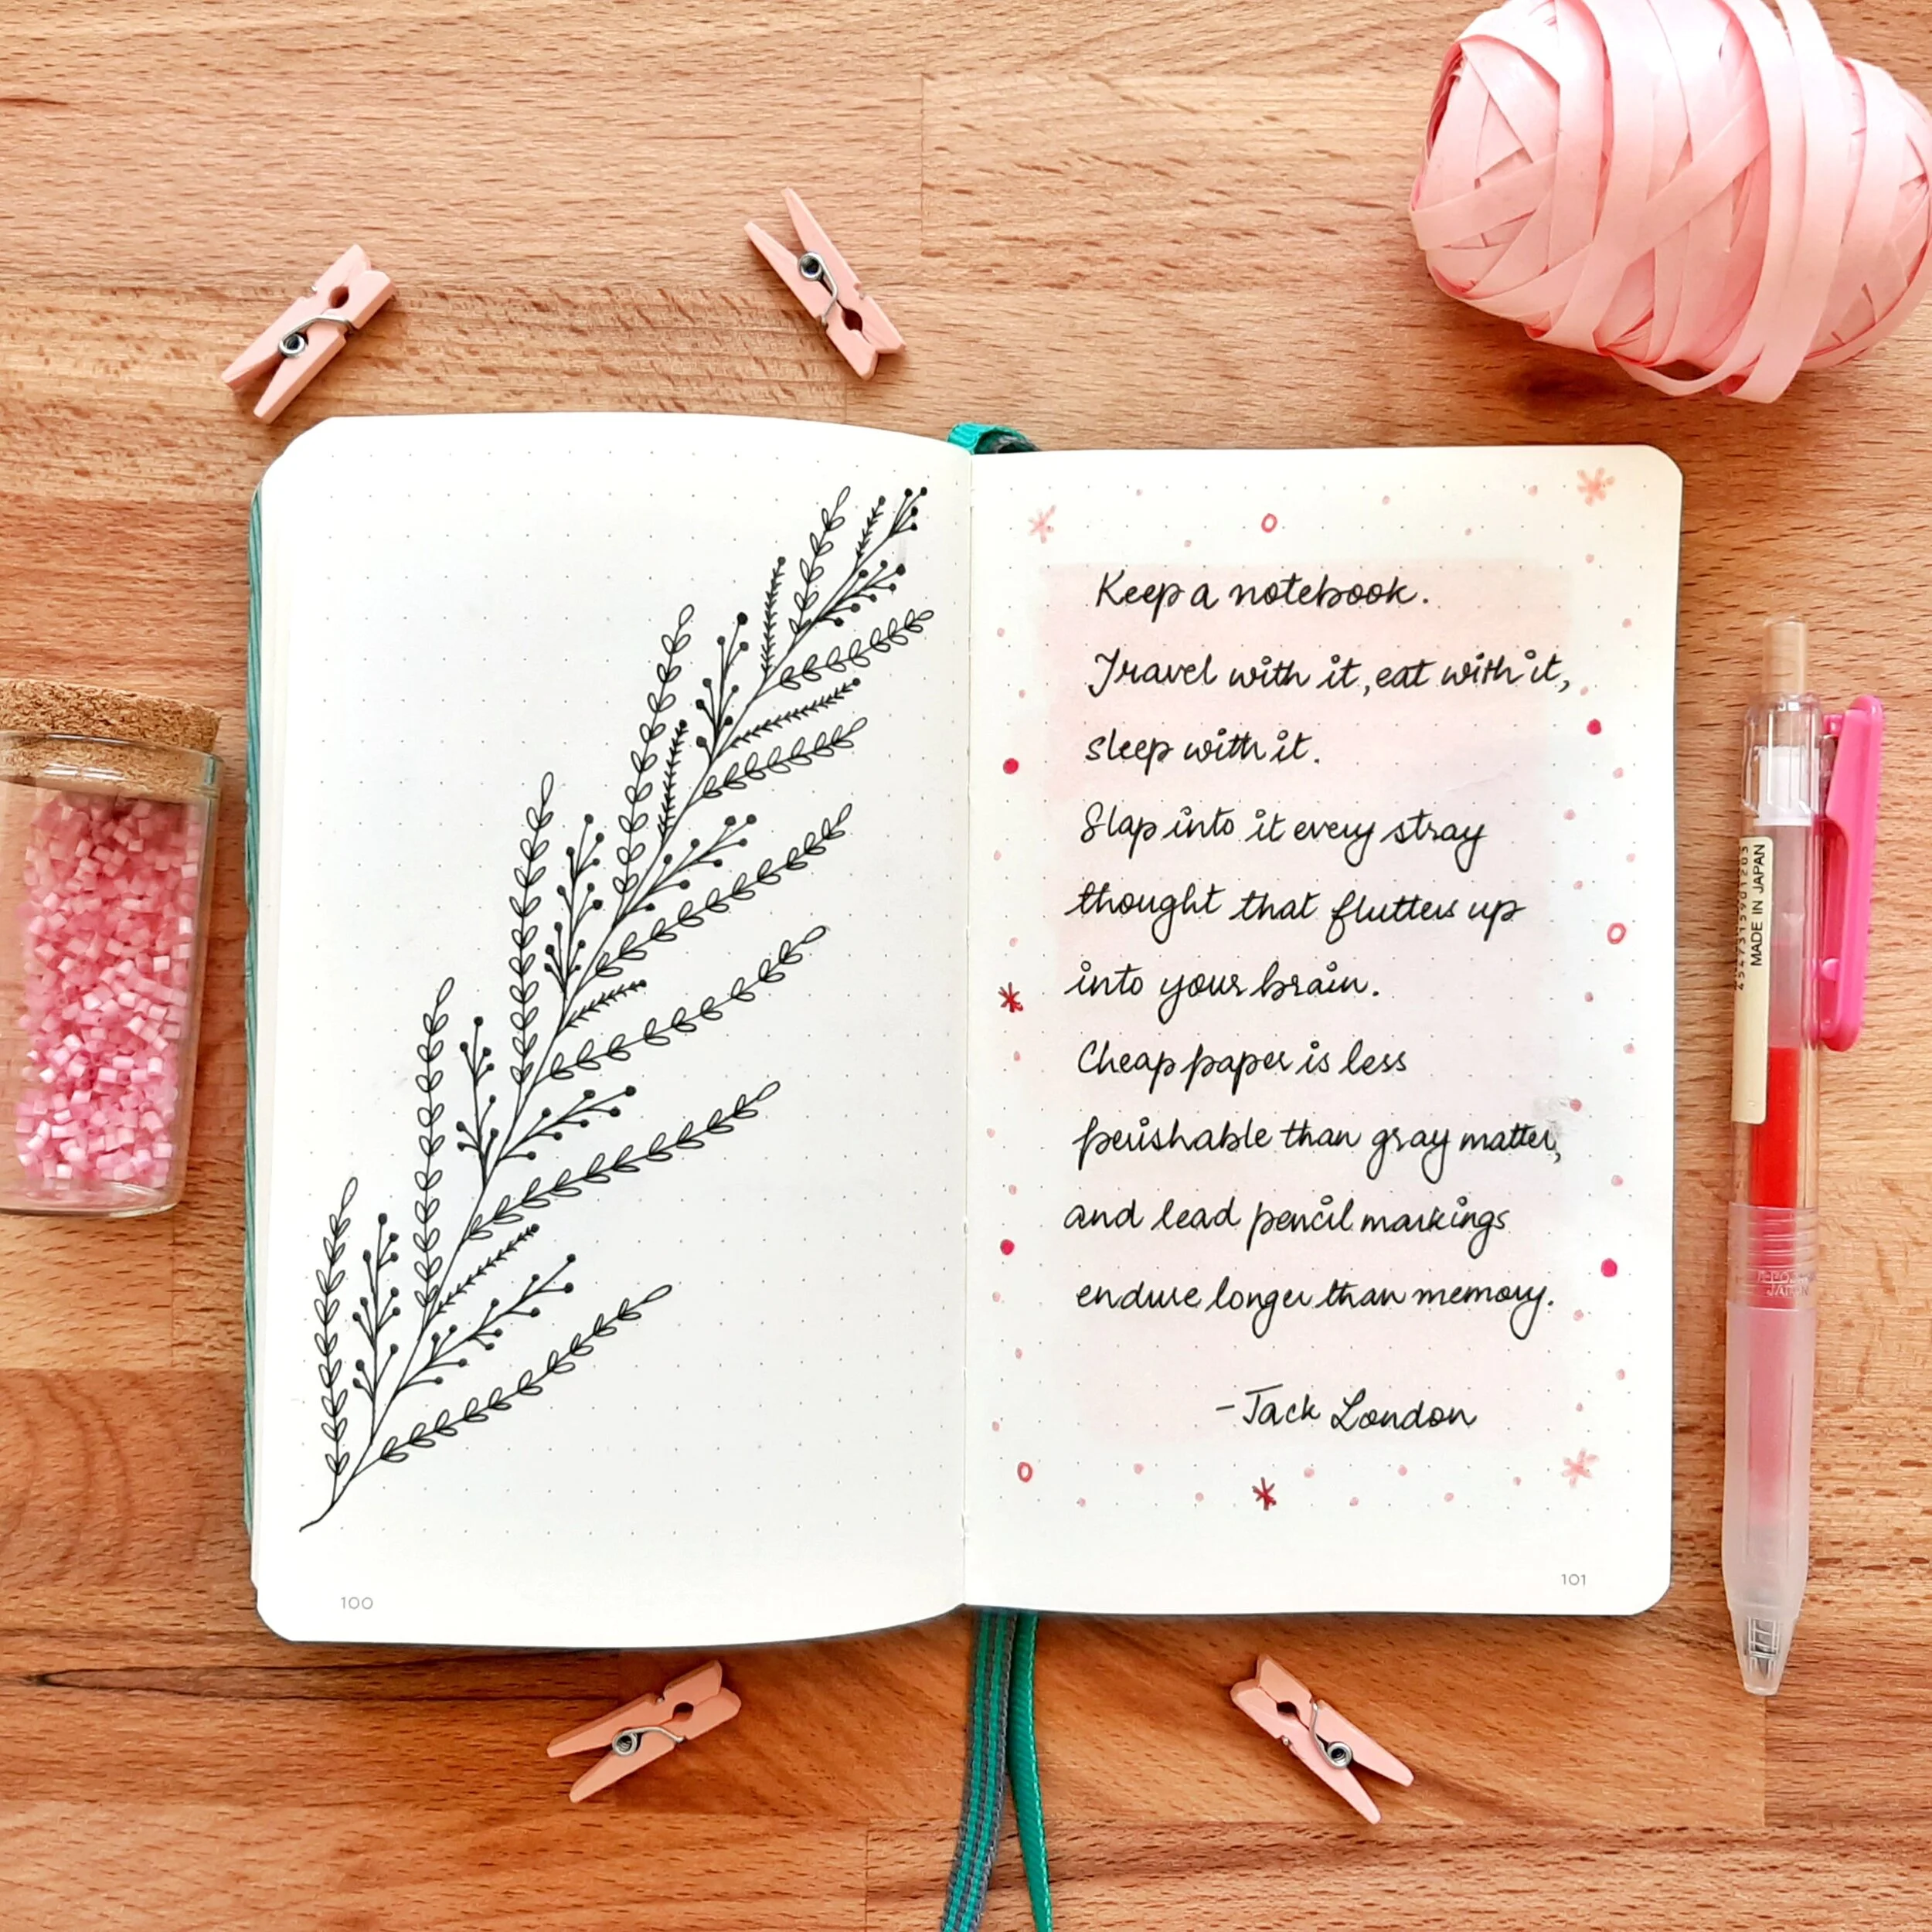 Keep a notebook.
Travel with it, eat with it,
sleep with it.
Slap into it every stray
thought that flutters up
into your brain.
Cheap paper is less
perishable than gray matter,
and lead pencil markings
endure longer than memory.
- Jack London
100
101
MADE IN JAPAN